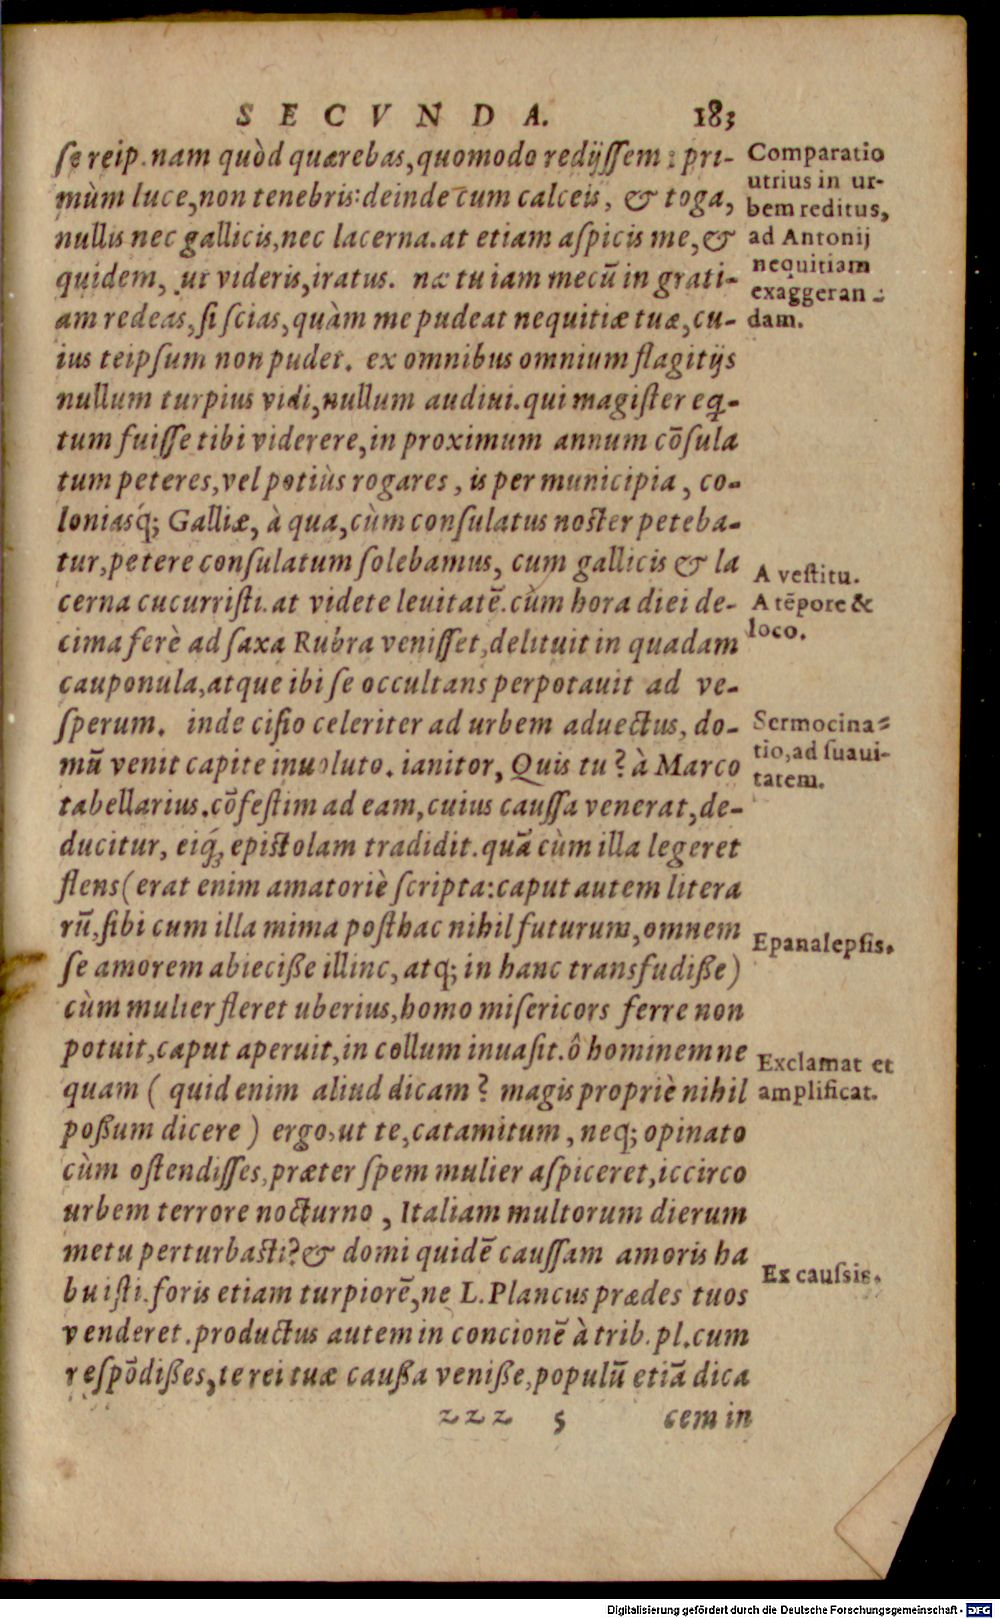 SECVNDA. 183
ſe reip. nam quòd quærebas, quomodo redijſſem: pri-
mùm luce, non tenebris: deinde cum calceis, & toga,
nullis nec gallicis, nec lacerna. at etiam aſpicis me, &
quidem, ut videris, iratus. næ tu iam mecũ in grati-
am redeas, ſi ſcias, quàm me pudeat nequitiæ tuæ, cu-
ius teipſum non pudet. ex omnibus omnium flagitijs
nullum turpius vidi, nullum audiui. qui magiſter eq̃-
tum fuiſſe tibi viderere, in proximum annum cõſula
tum peteres, vel potiùs rogares, is per municipia, co-
loniasq́; Galliæ, à qua, cùm conſulatus noſter peteba-
tur, petere conſulatum ſolebamus, cum gallicis & la
cerna cucurriſti. at videte leuitatẽ. cùm hora diei de-
cima ferè ad ſaxa Rubra veniſſet, delituit in quadam
cauponula, atque ibi ſe occultans perpotauit ad ve-
ſperum. inde ciſio celeriter ad urbem aduectus, do-
mũ venit capite inuoluto. ianitor, Quis tu? à Marco
tabellarius. cõfeſtim ad eam, cuius cauſſa venerat, de-
ducitur, eiq́; epiſtolam tradidit. quã cùm illa legeret
flens (erat enim amatoriè ſcripta: caput autem litera
rũ, ſibi cum illa mima poſthac nihil futurum, omnem
ſe amorem abieciße illinc, atq; in hanc transfudiße)
cùm mulier fleret uberius, homo miſericors ferre non
potuit, caput aperuit, in collum inuaſit. ô hominem ne
quam (quid enim aliud dicam? magis propriè nihil
poßum dicere) ergo, ut te, catamitum, neq; opinato
cùm oſtendiſſes, præter ſpem mulier aſpiceret, iccirco
urbem terrore nocturno, Italiam multorum dierum
metu perturbaſti? & domi quidẽ cauſſam amoris ha
buiſti. foris etiam turpiorẽ, ne L. Plancus prædes tuos
venderet. productus autem in concionẽ à trib. pl. cum
reſpõdißes, te rei tuæ caußa veniße, populũ etiã dica
zzz 5 cem in
Comparatio
utrius in ur-
bem reditus,
ad Antonij
nequitiam
exaggeran-
dam.
A veſtitu.
A tẽpore &
loco.
Sermocina-
tio, ad ſuaui-
tatem.
Epanalepſis.
Exclamat et
amplificat.
Ex cauſsis.
Digitalisierung gefördert durch die Deutsche Forschungsgemeinschaft - DFG